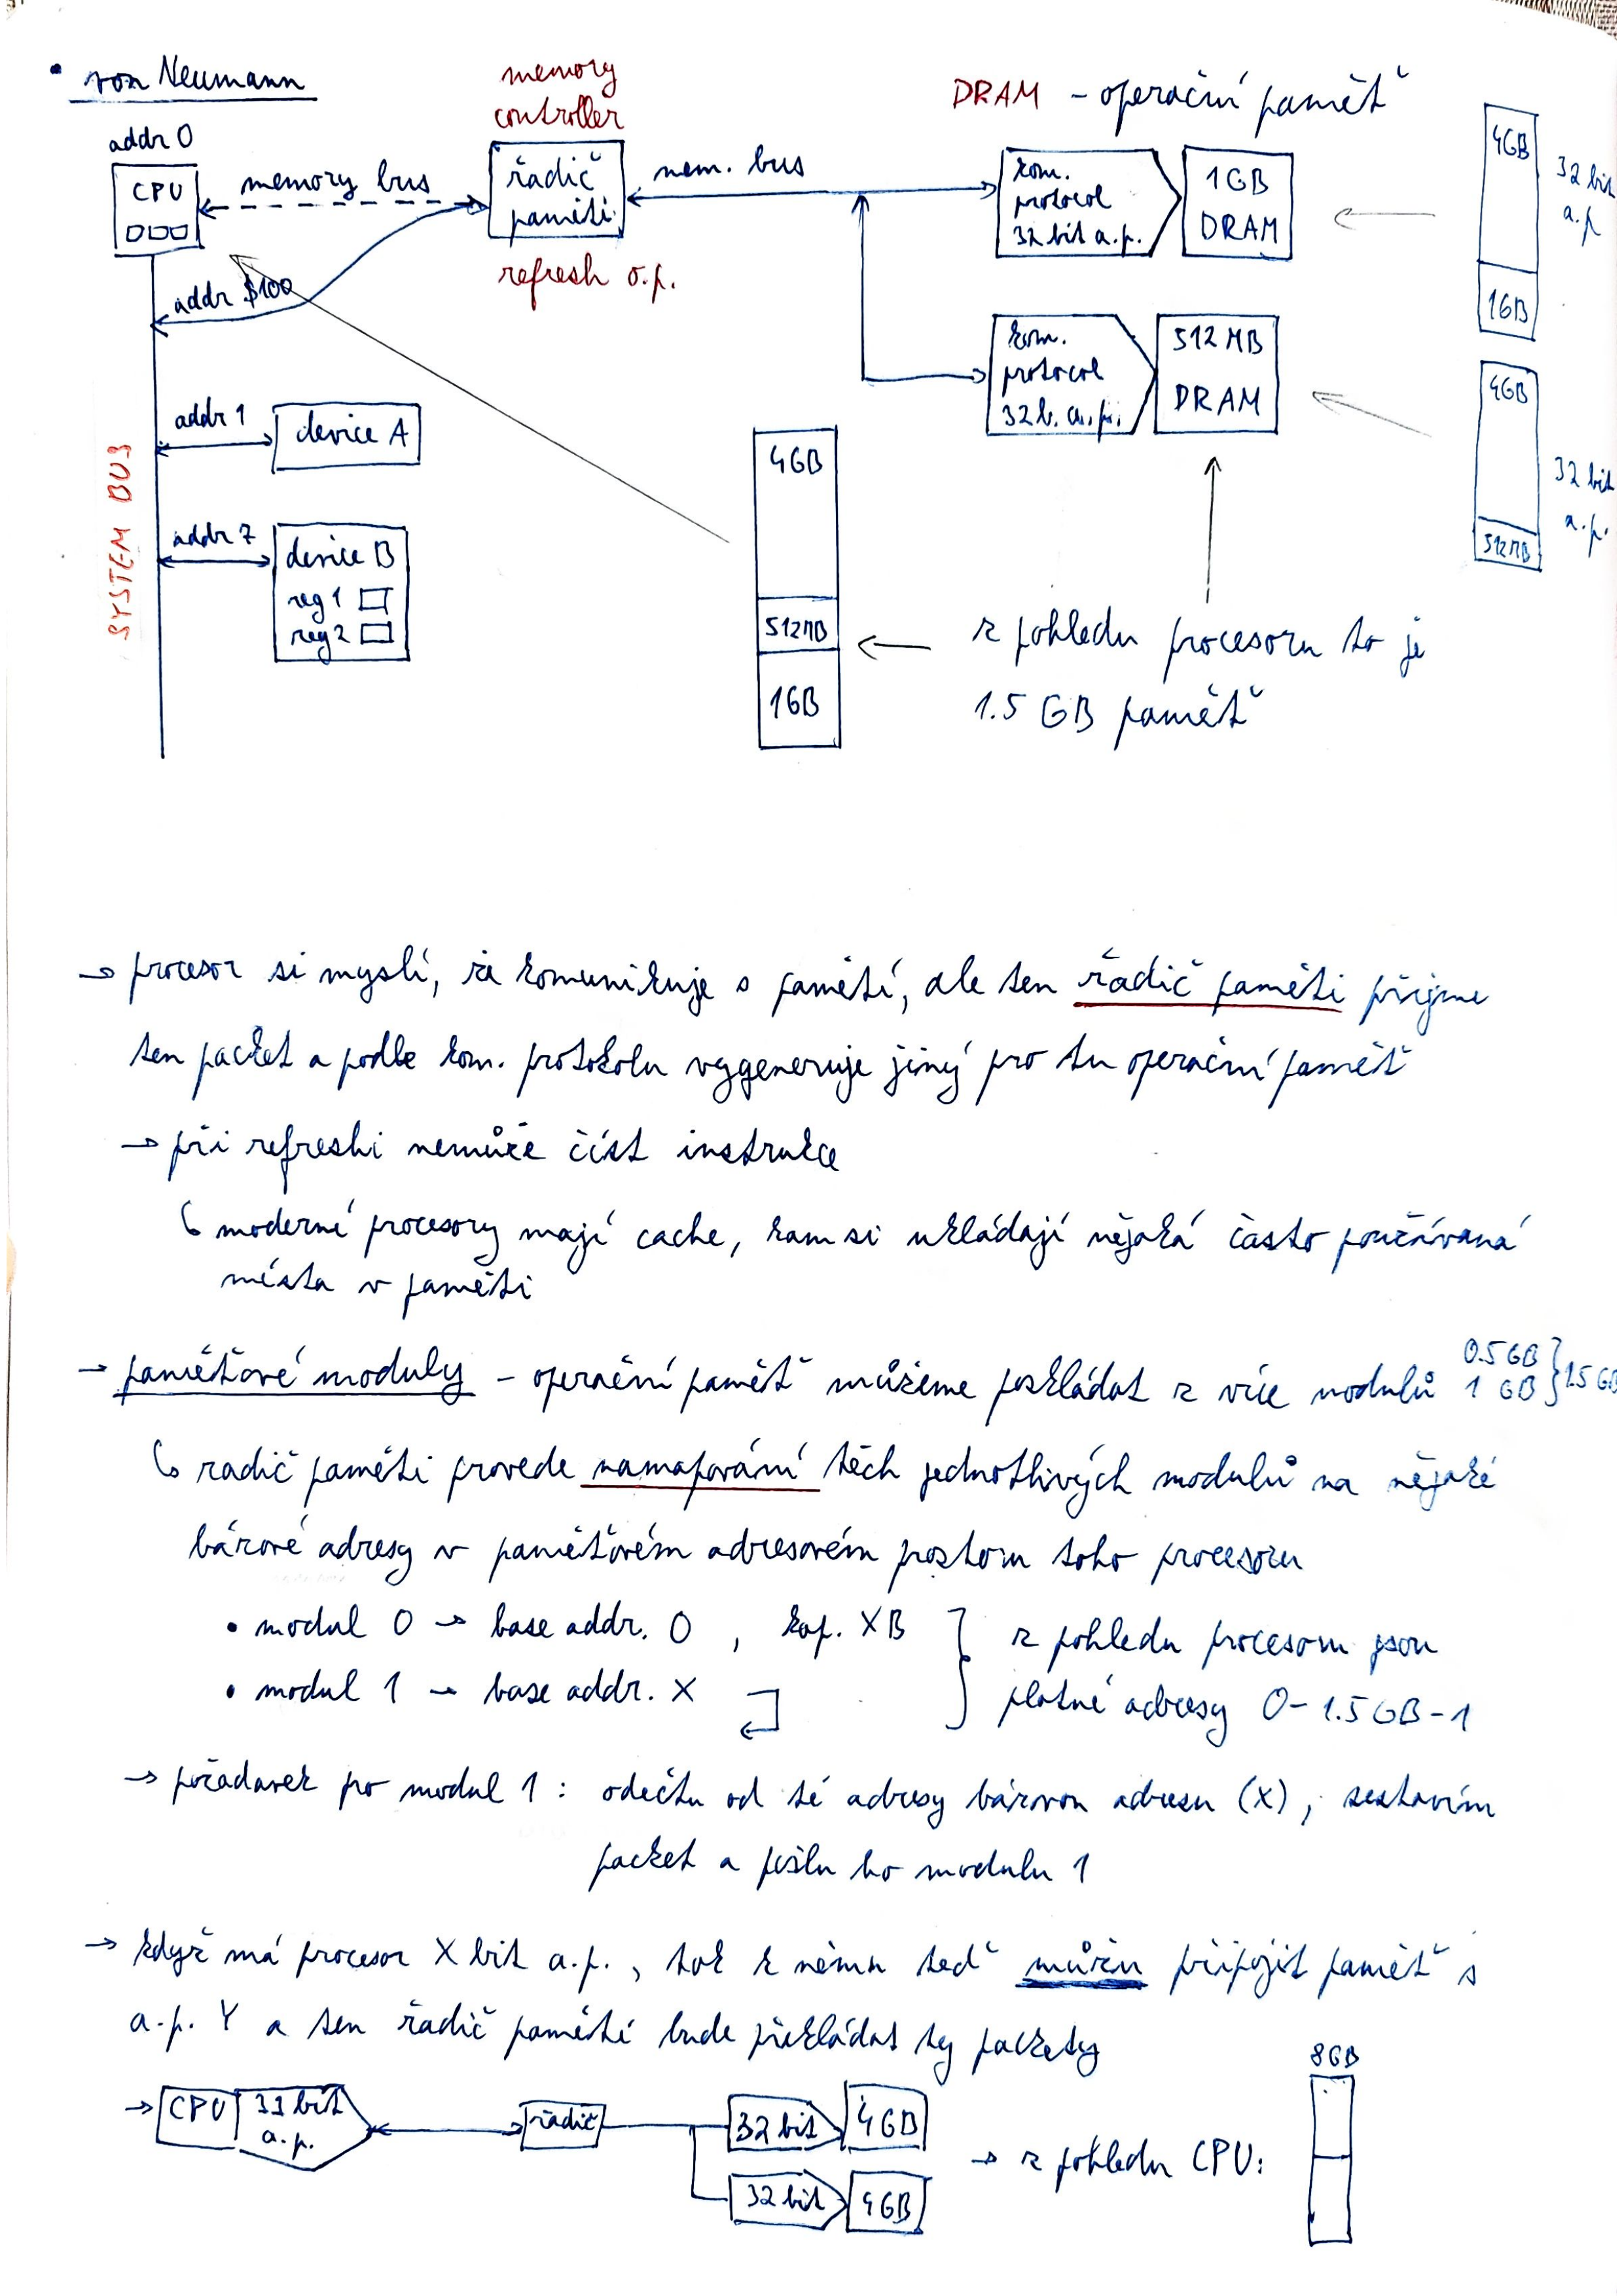 • von Neumann
memory
controller
DRAM - operační paměť
addr 0
CPU
memory bus
řadič
paměti
mem. bus
kom.
protocol
32 bit a.p.
1GB
DRAM
4GB
1GB
32 bit
a.p
refresh o.p.
addr $100
kom.
protocol
32 b. a.p.
512 MB
DRAM
4GB
512MB
32 bit
a.p.
SYSTEM BUS
addr 1
device A
addr 7
device B
reg 1
reg 2
4GB
512MB
1GB
z pohledu procesoru to je
1.5 GB paměť
→ procesor si myslí, že komunikuje s pamětí, ale ten řadič paměti přijme
ten packet a podle kom. protokolu vygeneruje jiný pro tu operační paměť
→ při refreshi nemůže číst instrukce
↳ moderní procesory mají cache, kam si ukládají nějaká často používaná
místa v paměti
→ paměťové moduly - operační paměť můžeme poskládat z více modulů 0.5 GB
1 GB } 1.5 GB
↳ radič paměti provede namapování těch jednotlivých modulů na nějaké
bázové adresy v paměťovém adresovém prostoru toho procesoru
• modul 0 → base addr. 0 , kap. X B
• modul 1 → base addr. X
z pohledu procesoru jsou
platné adresy 0 - 1.5 GB - 1
→ požadavek pro modul 1 : odečtu od té adresy bázovou adresu (X), sestavím
packet a pošlu ho modulu 1
→ když má procesor X bit a.p. , tak k němu teď můžu připojit paměť s
a.p. Y a ten řadič paměti bude překládat ty packety
→ CPU 33 bit
a.p.
řadič
32 bit
4GB
32 bit
4GB
→ z pohledu CPU:
8GB